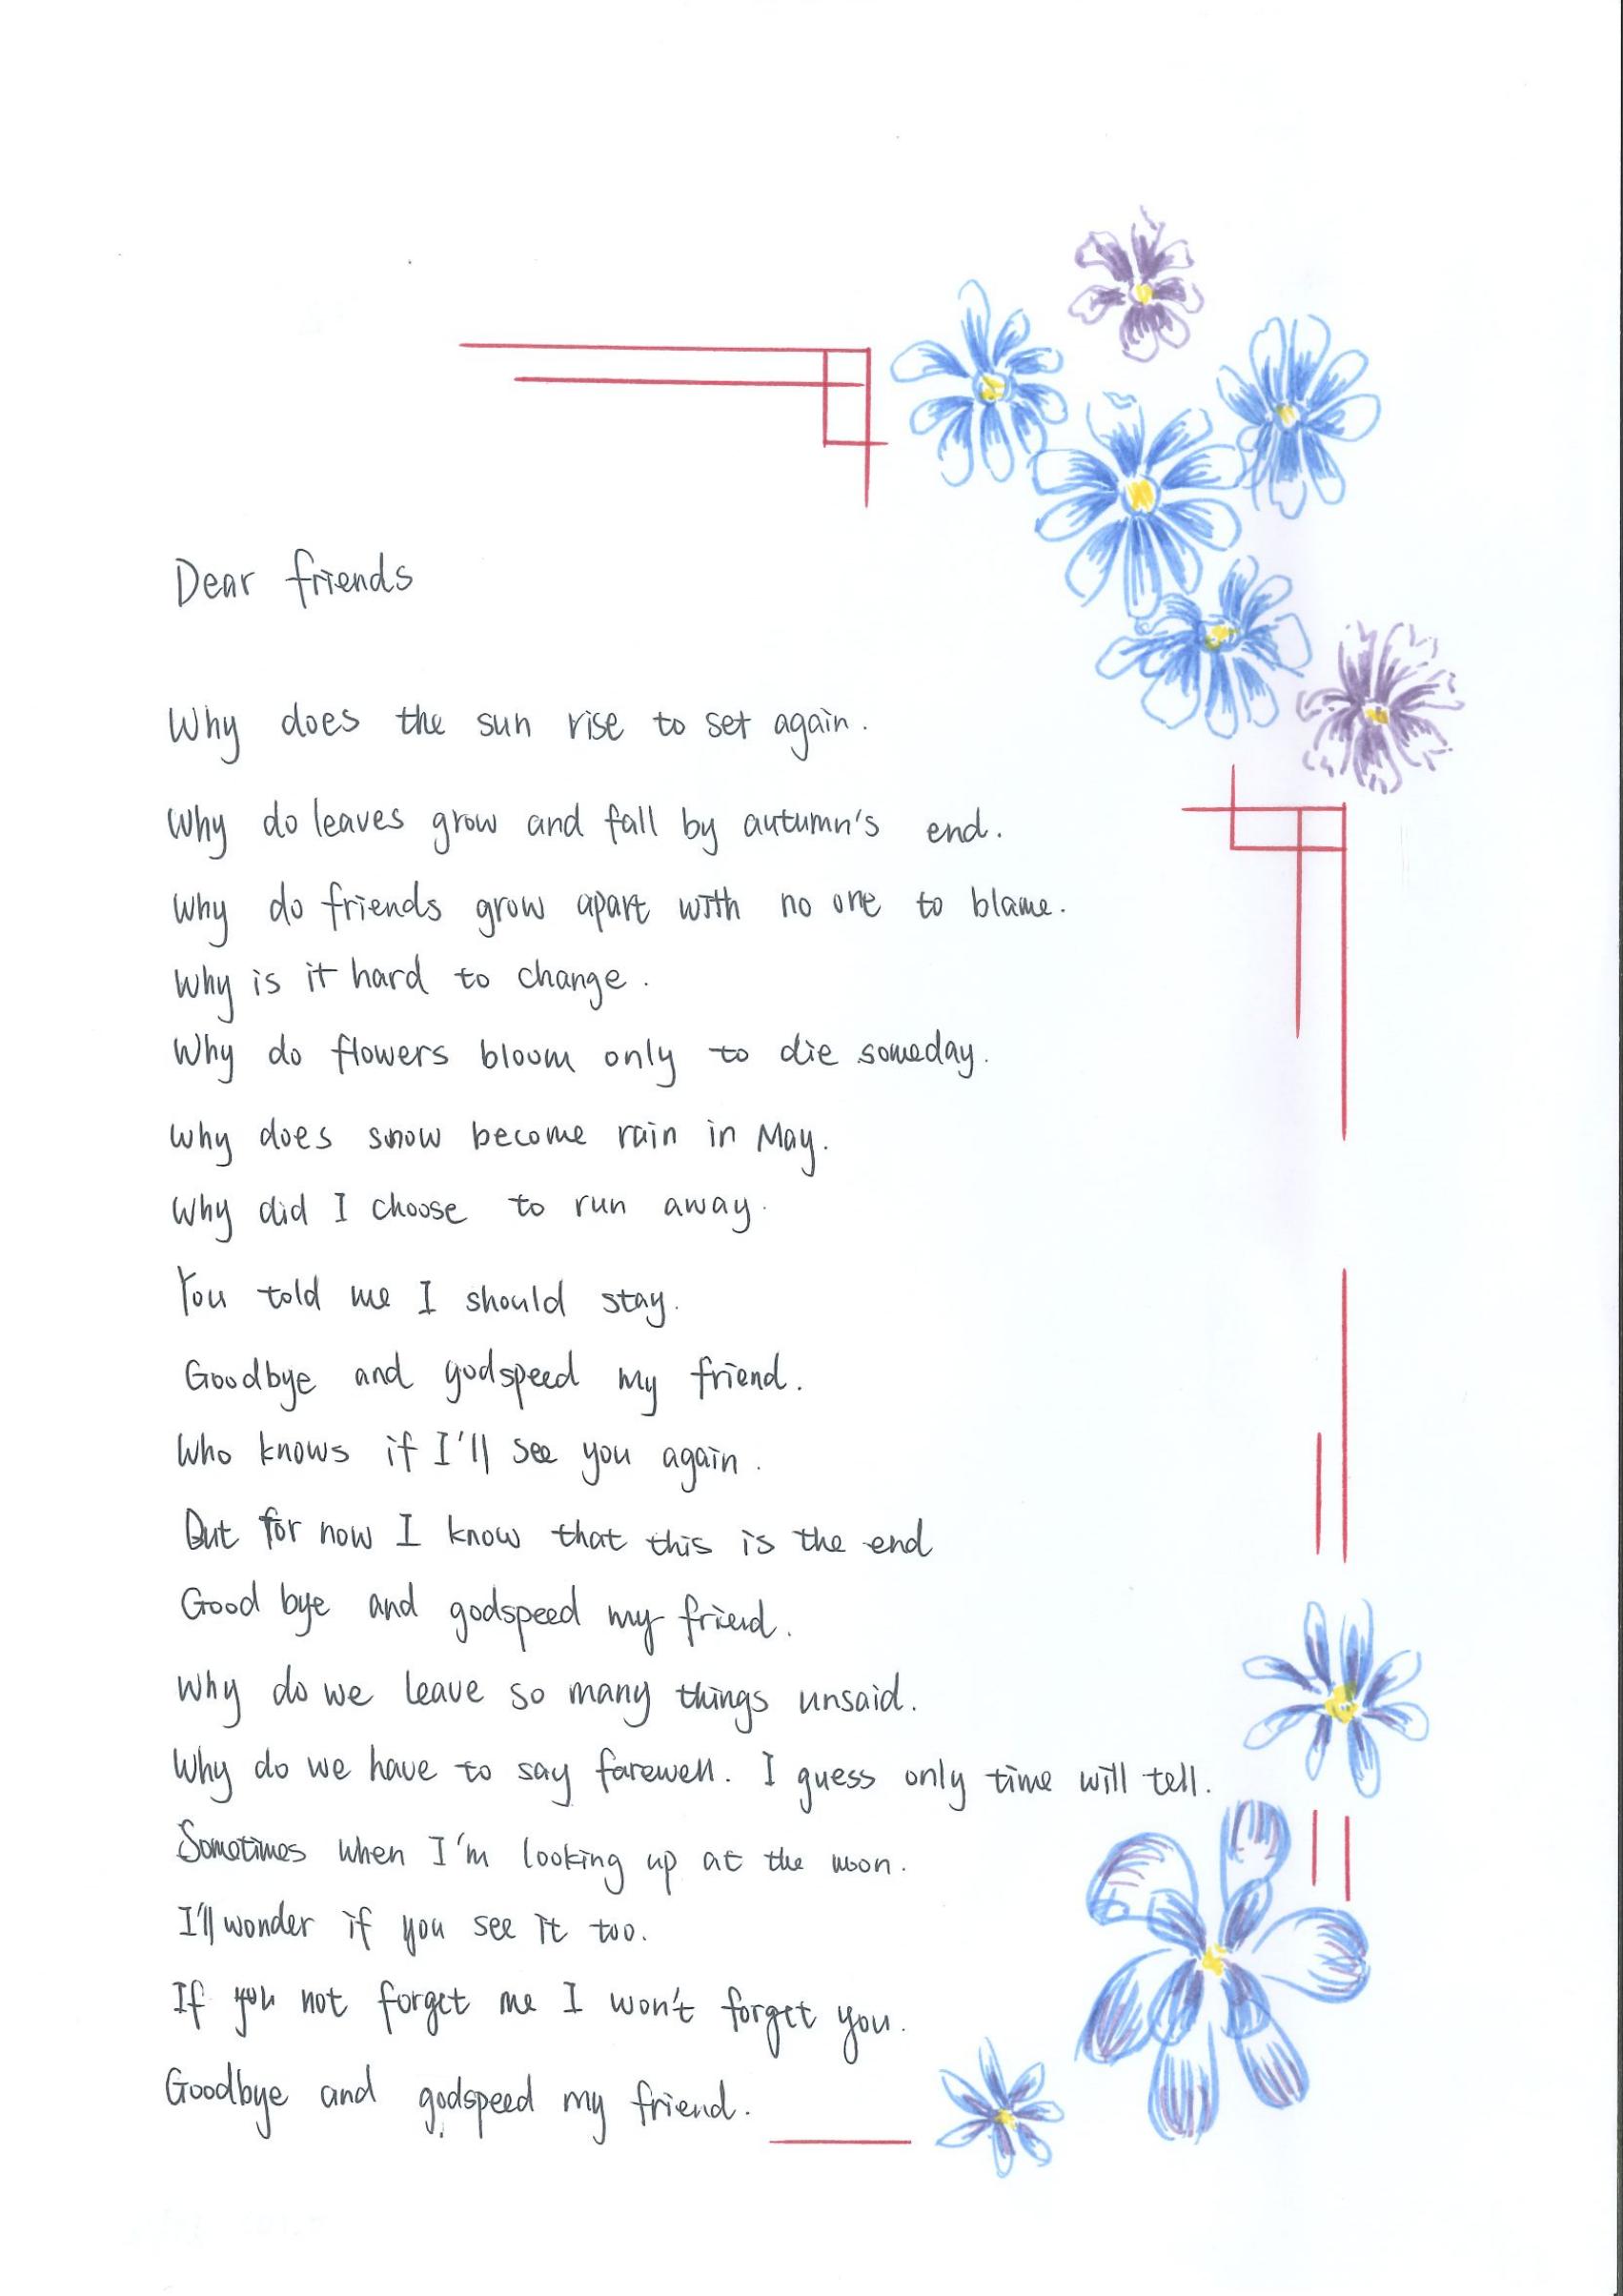 Dear friends
Why does the sun rise to set again.
Why do leaves grow and fall by autumn's end.
Why do friends grow apart with no one to blame.
Why is it hard to change.
Why do flowers bloom only to die someday.
Why does snow become rain in May.
Why did I choose to run away.
You told me I should stay.
Goodbye and godspeed my friend.
Who knows if I'll see you again.
But for now I know that this is the end
Good bye and godspeed my friend.
Why do we leave so many things unsaid.
Why do we have to say farewell. I guess only time will tell.
Sometimes when I'm looking up at the moon.
I'll wonder if you see it too.
If you not forget me I won't forget you.
Goodbye and godspeed my friend.